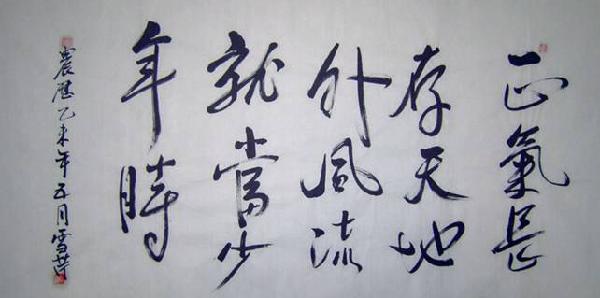 正氣長
存天地
外風流
就當少
年時
農歷乙未年五月雪芹